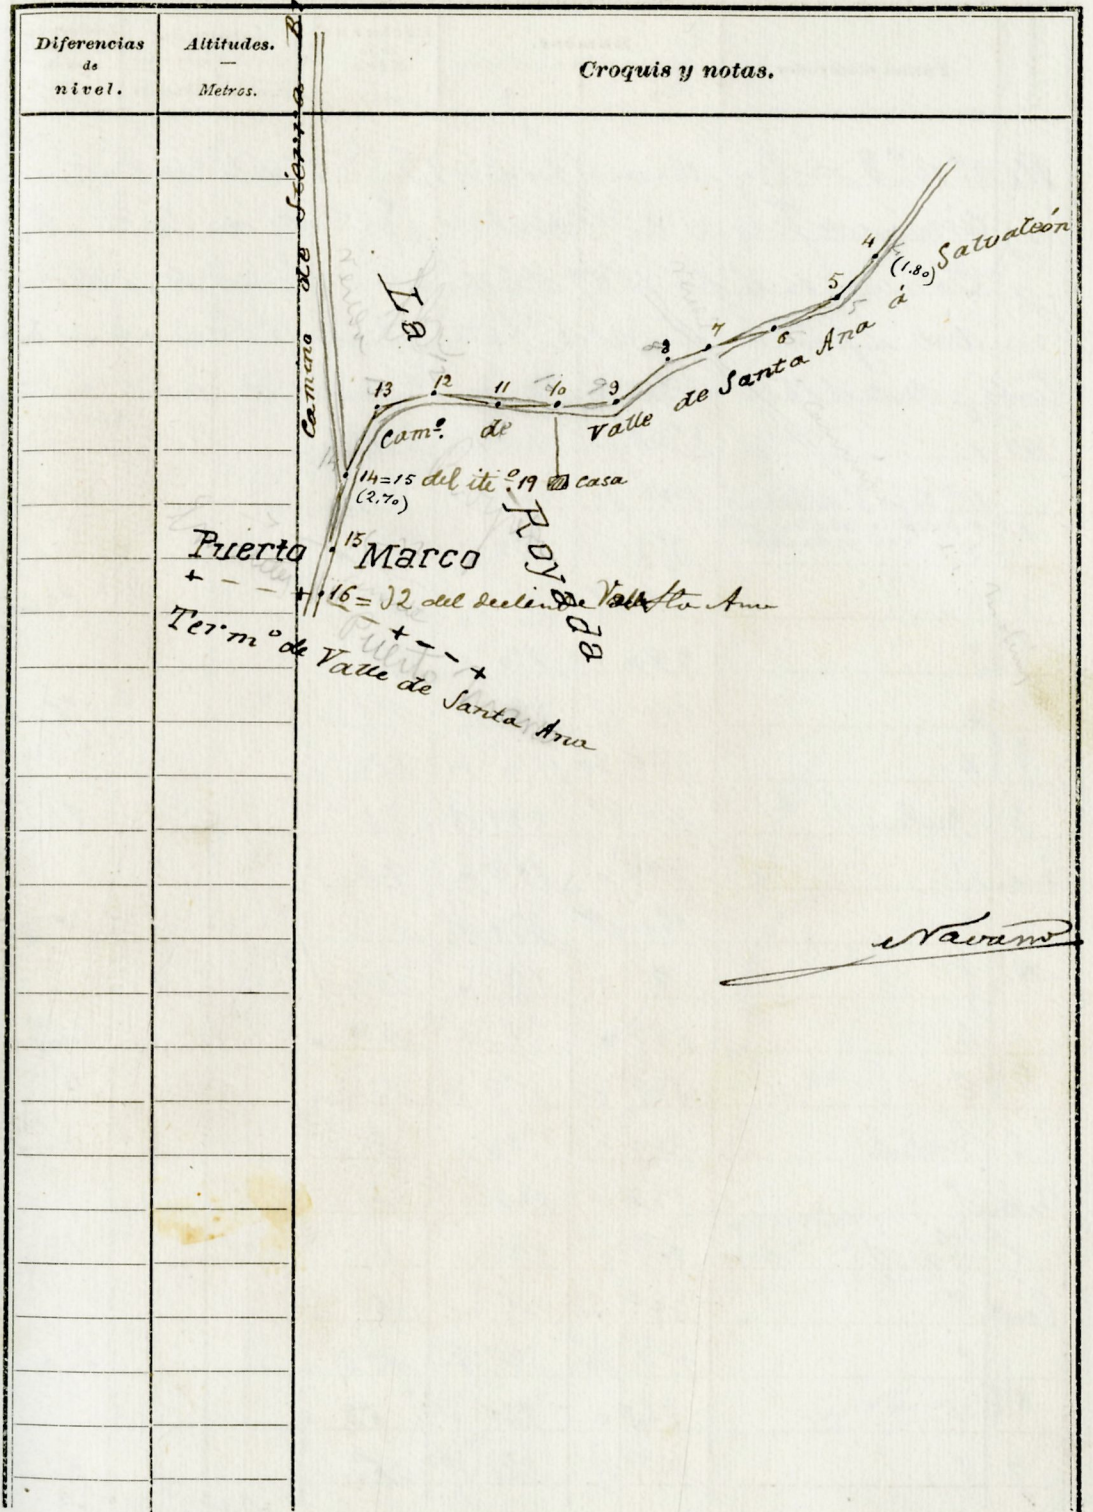 Diferencias
de
nivel.
Altitudes.
Metros.
Croquis y notas.
Camino de Sierra
La Royada
4
(1.80)
5
6
7
8
9
10
11
12
13
Cam.º de Valle de Santa Ana á Salvaleón
14=15 del it.º 19
(2.70)
casa
15
Puerto Marco
16=32 del deslinde Valle Sta Ana
Term.º de Valle de Santa Ana
Navarro